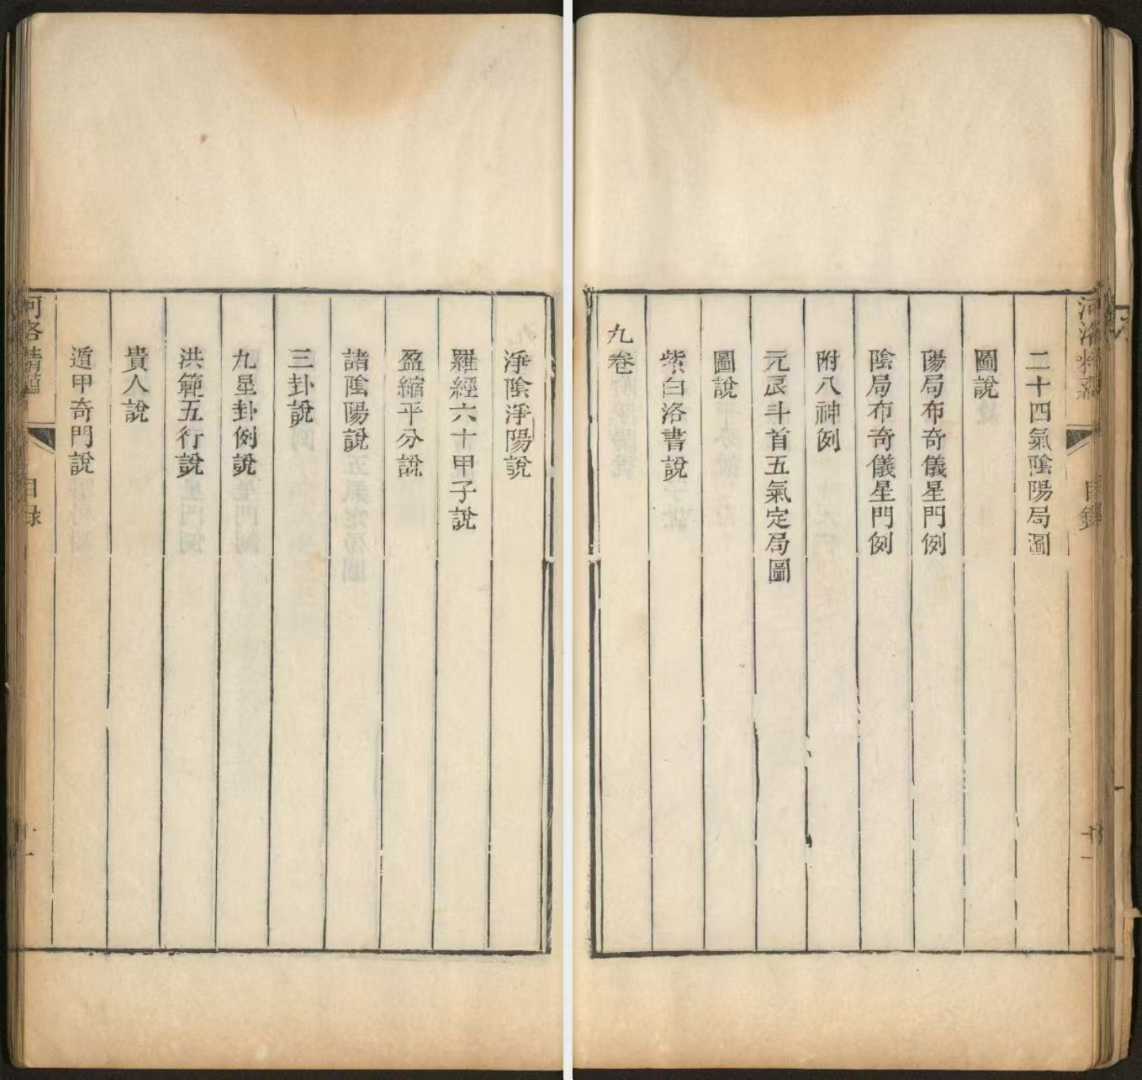 二十四氣陰陽局圖
圖說
陽局布奇儀星門例
陰局布奇儀星門例
附八神例
元辰斗首五氣定局圖
圖說
紫白洛書說
九卷
淨陰淨陽說
羅經六十甲子說
盈縮平分說
諸陰陽說
三卦說
九星卦例說
洪範五行說
貴人說
遁甲奇門說
河洛精蘊
目錄